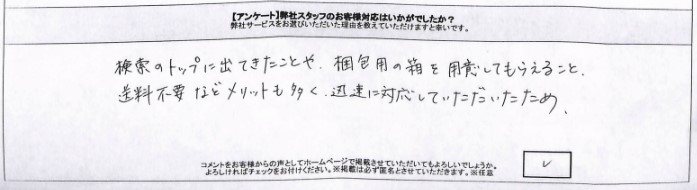 【アンケート】弊社スタッフのお客様対応はいかがでしたか？
弊社サービスをお選びいただいた理由を教えていただけますと幸いです。
検索のトップに出てきたことや、梱包用の箱を用意してもらえること、
送料不要などメリットも多く、迅速に対応していただいたため。
コメントをお客様からの声としてホームページで掲載させていただいてもよろしいでしょうか。
よろしければチェックをお付けください。※掲載は必ず匿名とさせていただきます。※任意
✓